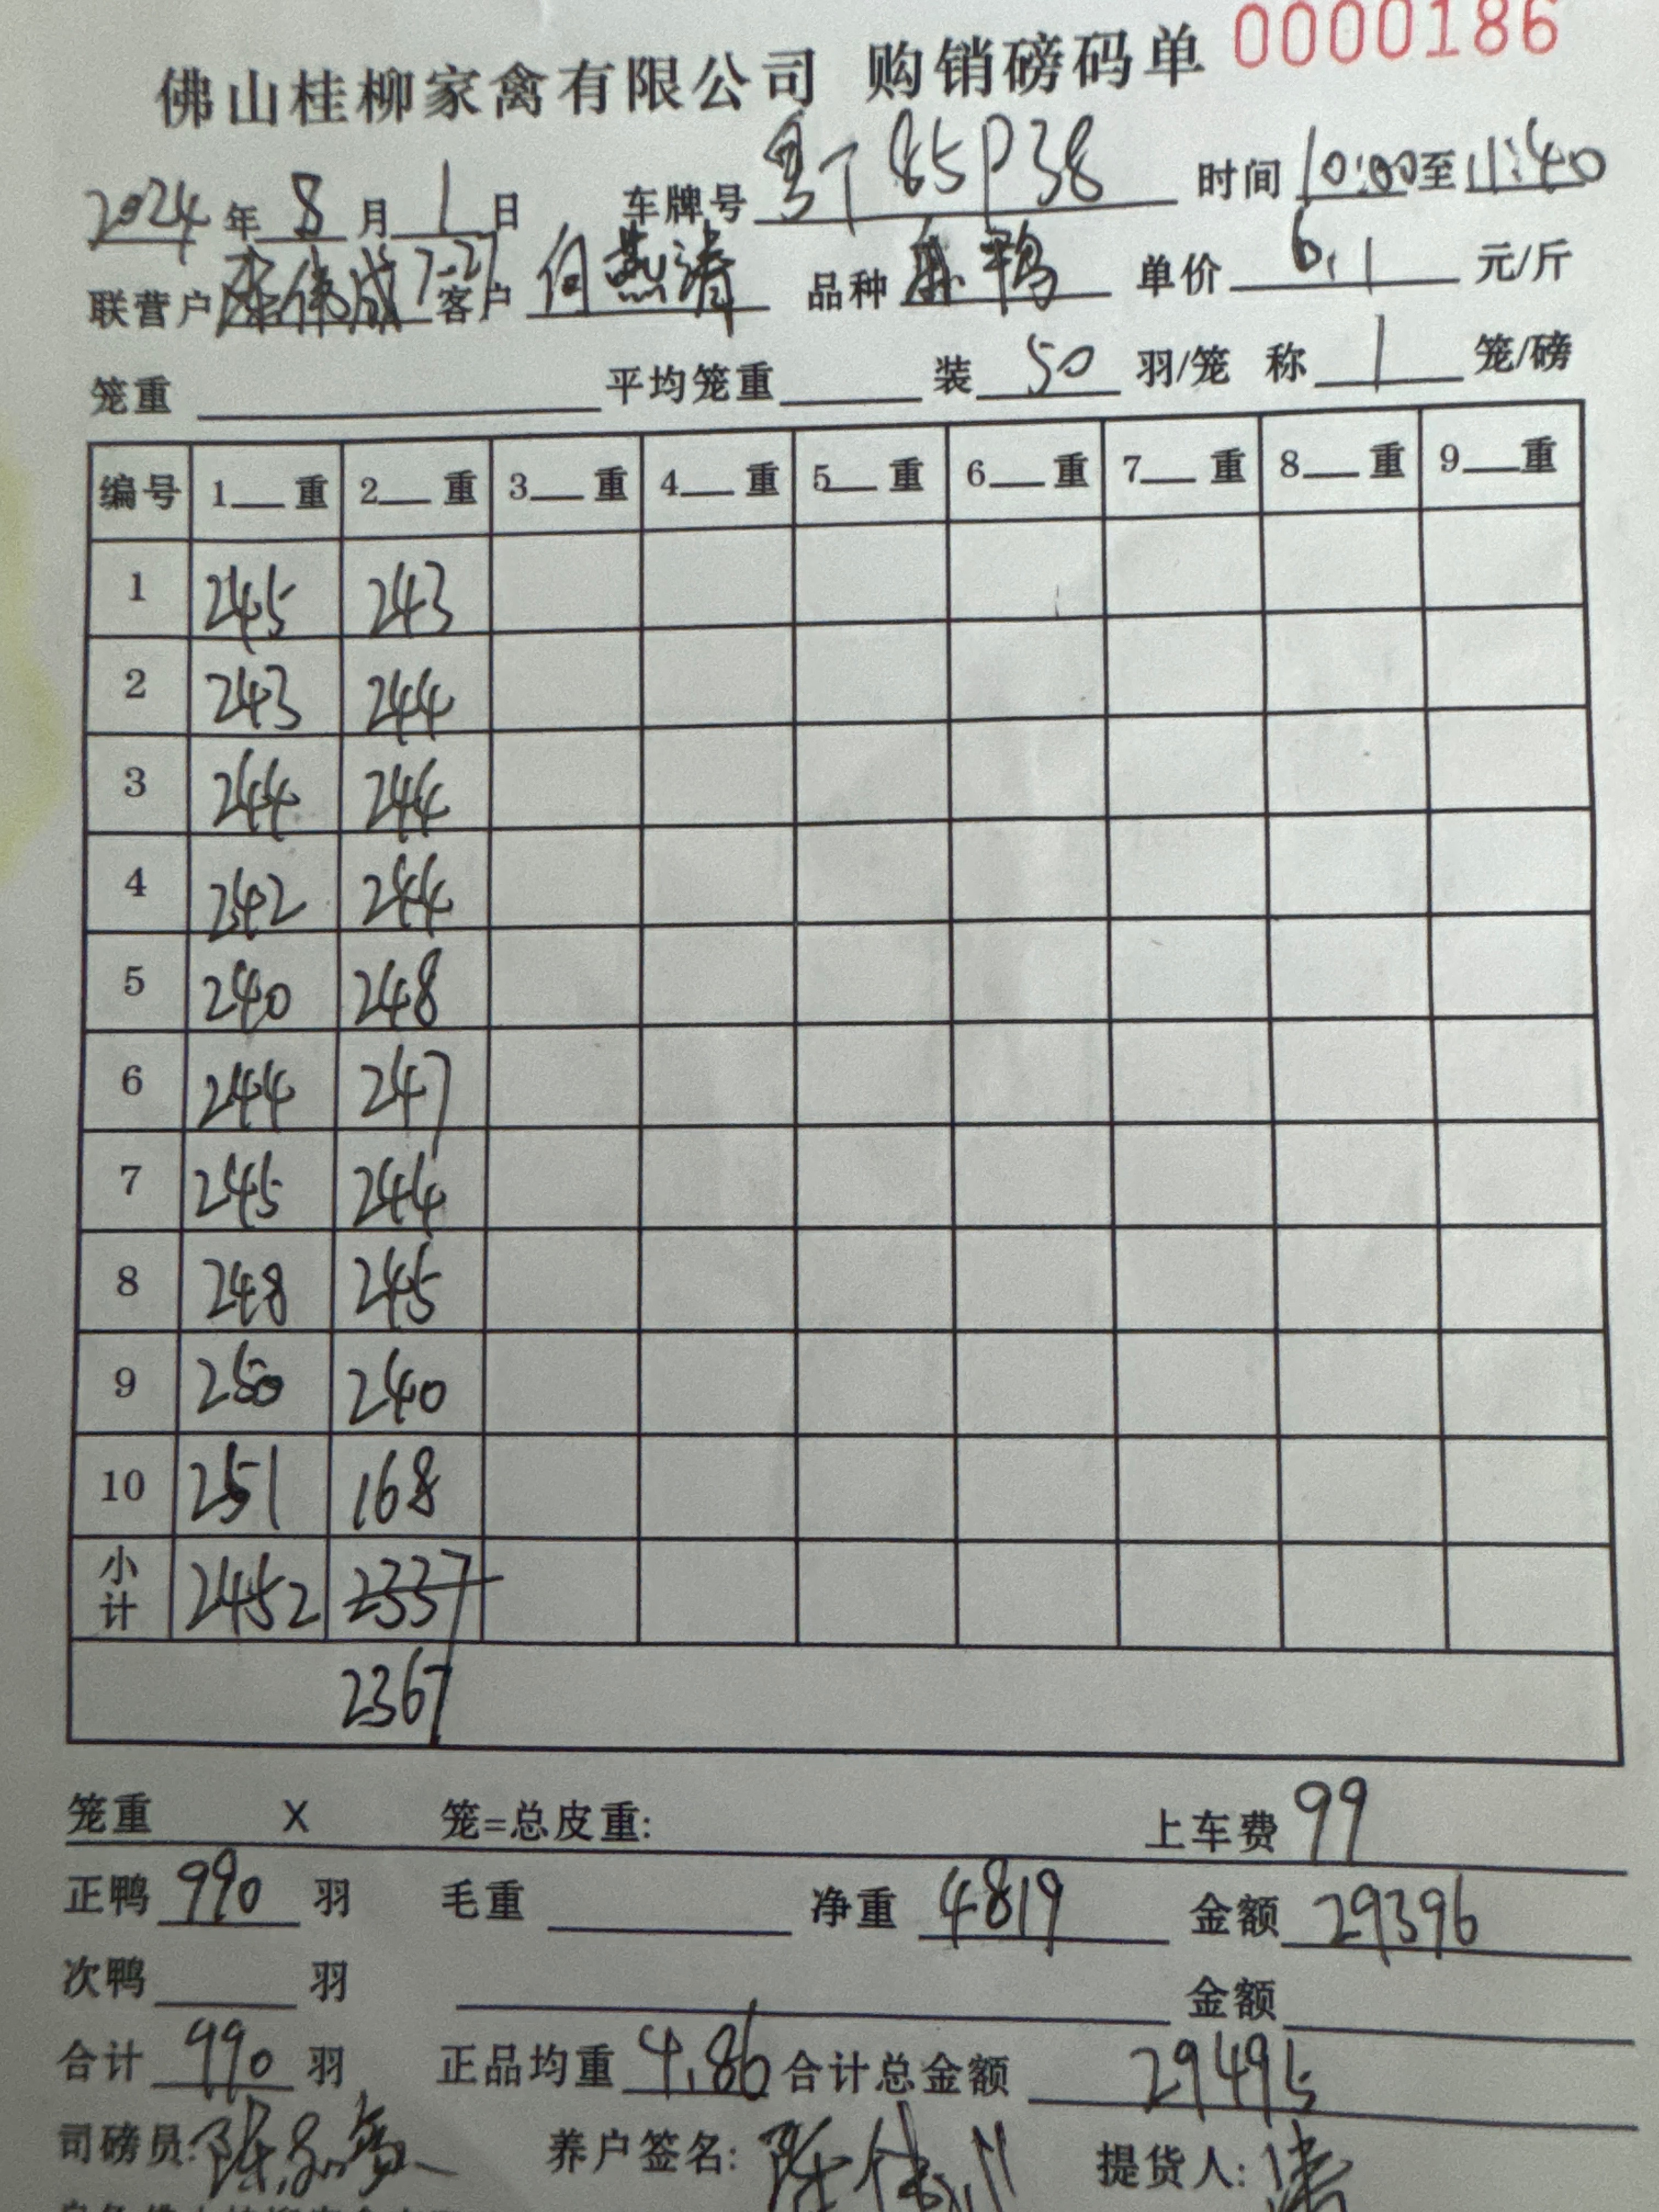 佛山桂柳家禽有限公司 购销磅码单 0000186
2024 年 8 月 1 日 车牌号 粤T 85P38 时间 10:00 至 11:40
联营户 伟成 7-27 客户 何燕涛 品种 麻鸭 单价 6.1 元/斤
笼重 平均笼重 装 50 羽/笼 称 1 笼/磅
编号 1 重 2 重 3 重 4 重 5 重 6 重 7 重 8 重 9 重
1 245 243
2 243 244
3 244 244
4 242 244
5 240 248
6 244 247
7 245 244
8 248 245
9 250 240
10 251 168
小计 2452 2337
2367
笼重 X 笼=总皮重: 上车费 99
正鸭 990 羽 毛重 净重 4819 金额 29396
次鸭 羽 金额
合计 990 羽 正品均重 4.86 合计总金额 29495
司磅员: 陈 养户签名: 陈伟 提货人: 涛